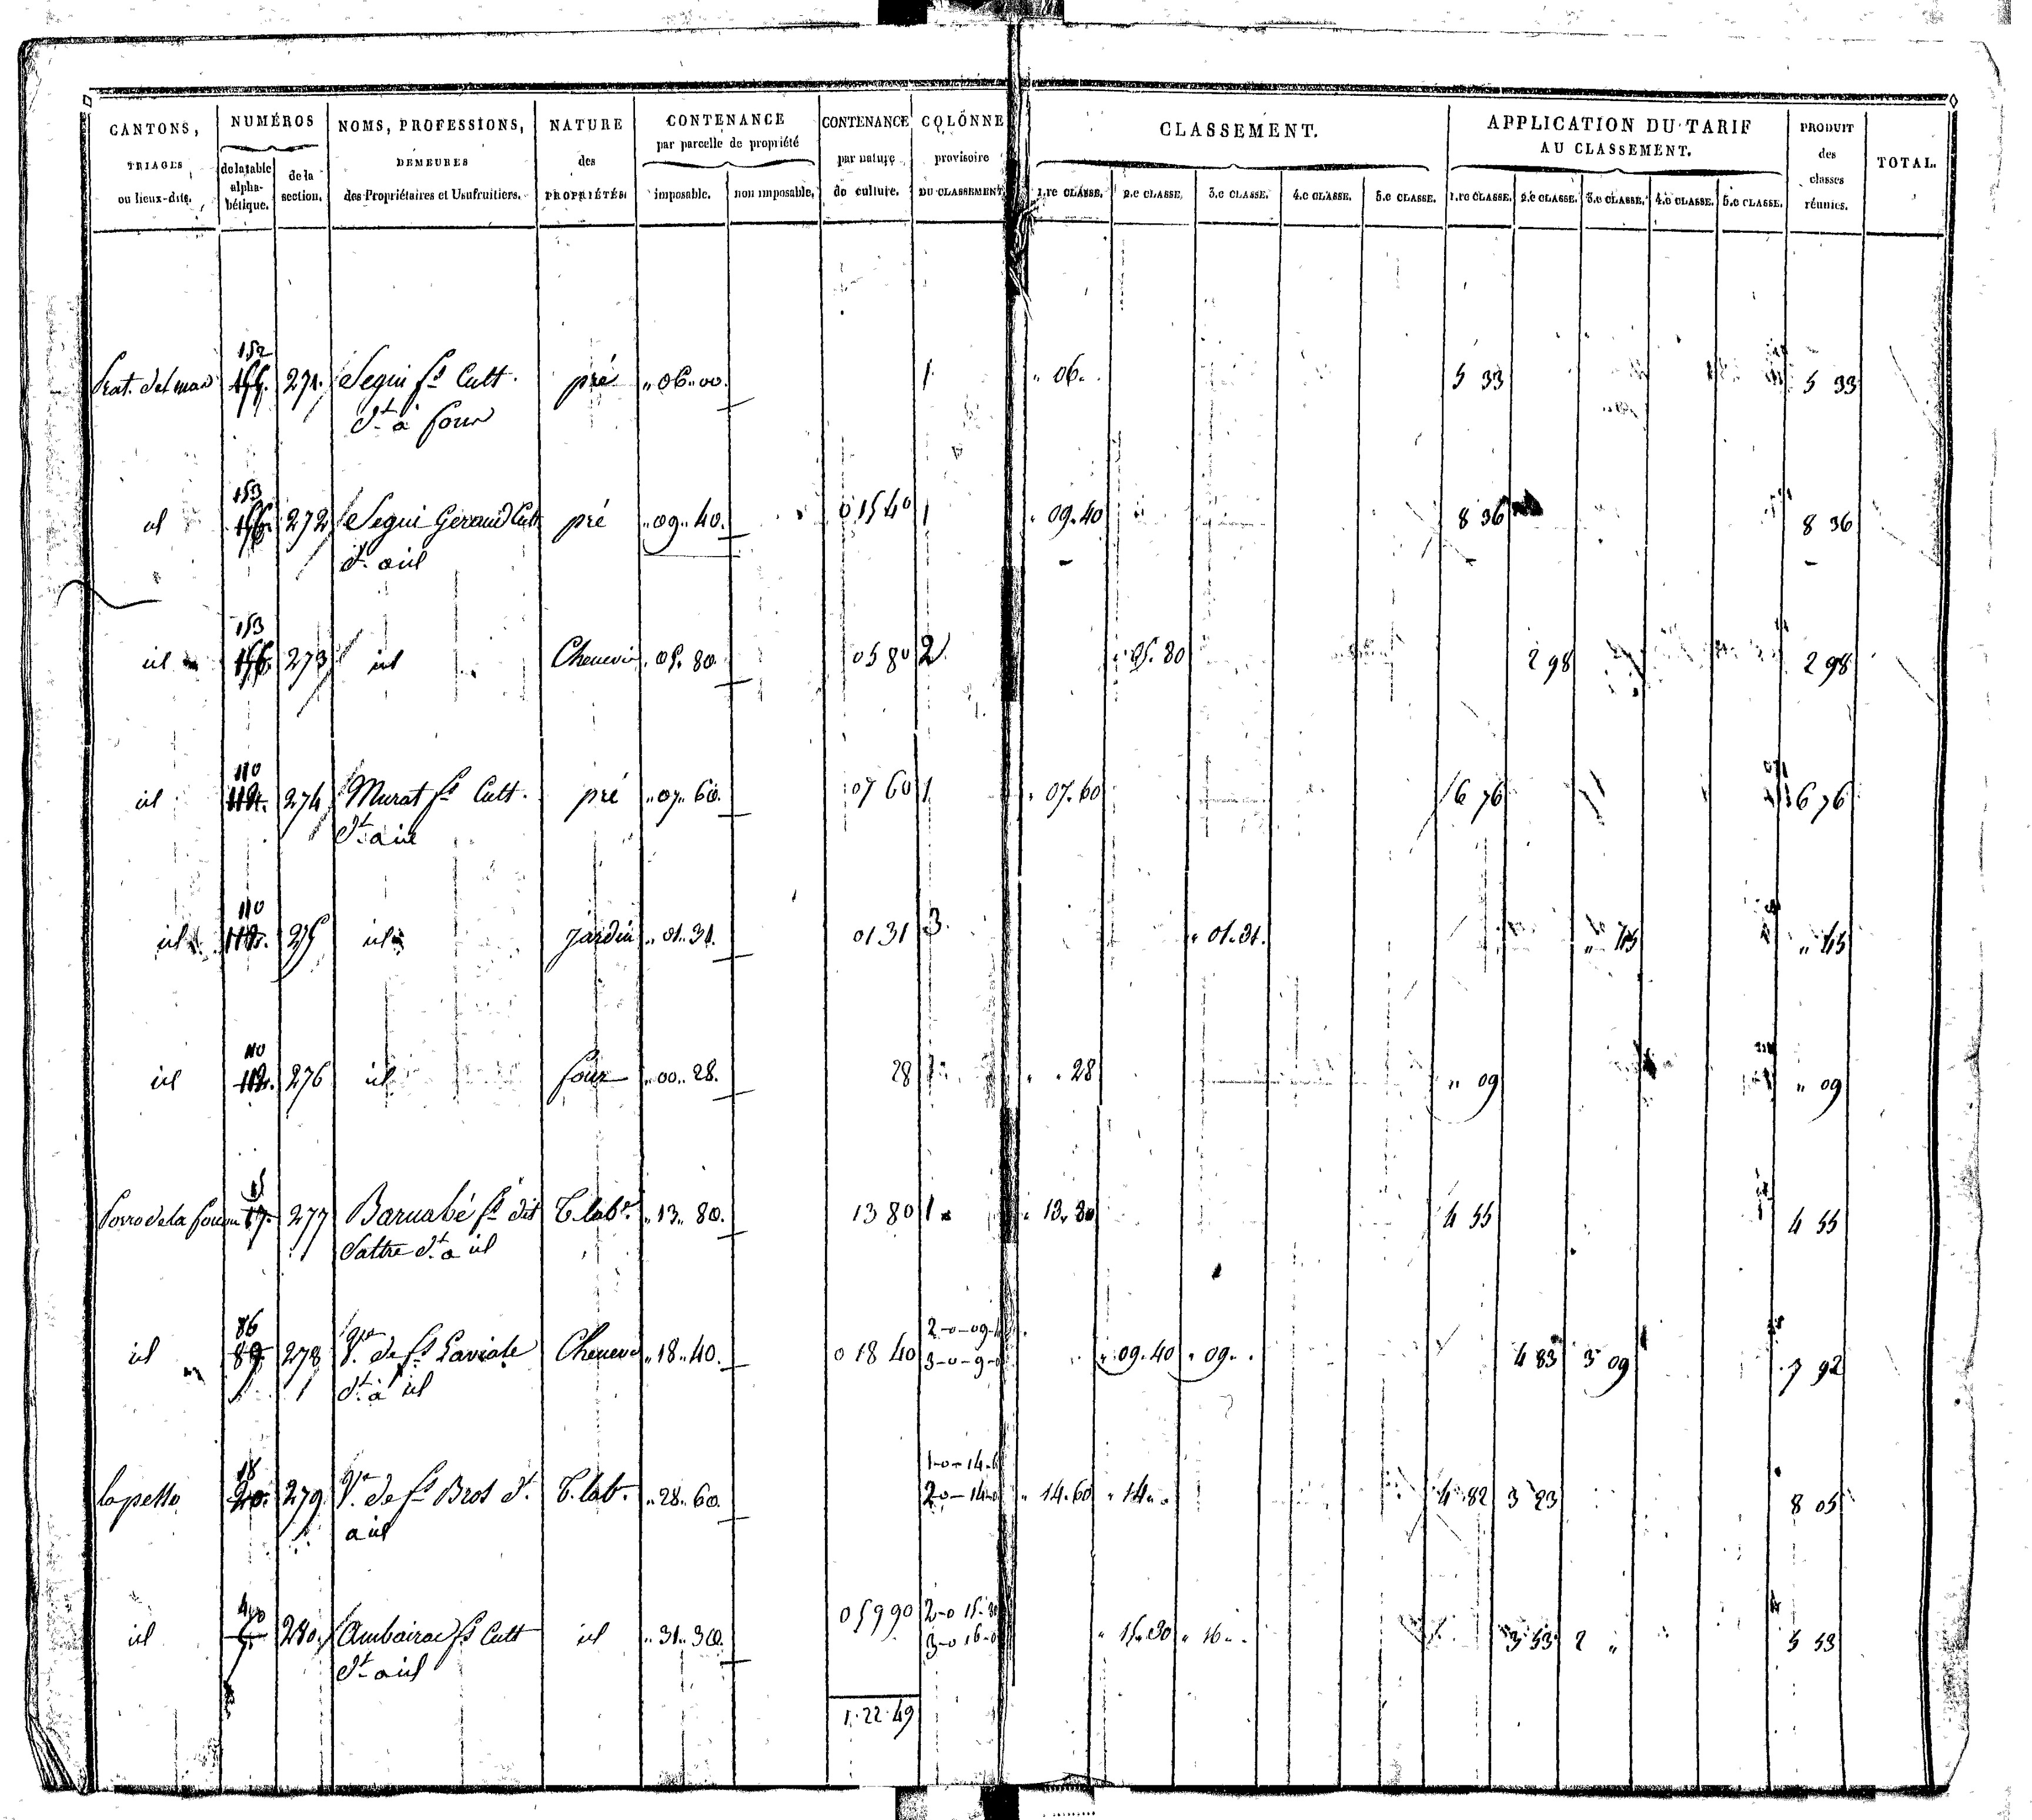 CANTONS, TRIAGES ou lieux-dits. NUMÉROS de la table alpha-bétique. de la section. NOMS, PROFESSIONS, DEMEURES des Propriétaires et Usufruitiers. NATURE des PROPRIÉTÉS. CONTENANCE par parcelle de propriété imposable. non imposable. CONTENANCE par nature de culture. COLONNE provisoire DU CLASSEMENT CLASSEMENT. 1.re CLASSE. 2.e CLASSE. 3.e CLASSE. 4.e CLASSE. 5.e CLASSE. APPLICATION DU TARIF AU CLASSEMENT. 1.re CLASSE. 2.e CLASSE. 3.e CLASSE. 4.e CLASSE. 5.e CLASSE. PRODUIT des classes réunies. TOTAL.
152
Prat. del mas 271. Segui fs Cult. pré " 06 " 00. 1 " 06 . . 5 33 5 33
dt à four
153
id 156. 272 Segui Geraud Cult pré " 09 " 40. 0 15 40 1 " 09 . 40 8 36 8 36
dt a id
153
id 156. 273 id Chenevir " 05 . 80. 05 80 2 " 05 . 80 2 98 2 98
110
id 112. 274 Murat fs Cult. pré " 07 " 60. 07 60 1 " 07 . 60 6 76 6 76
dt a id
110
id 112. 275 id jardin " 01 " 31. 01 31 3 " 01 . 31.
110
id 112. 276 id four " 00 " 28. 28 1 " . 28 " 09 " 09
15
17. 277 Barnabé fs dit T. labe. " 13 " 80. 13 80 1 " 13 . 80 4 55 4 55
dt a id
86
id 89 278 Ve. de fs Laviale Chenevi " 18 " 40. 0 18 40 " 09 . 40 " 09 . . 4 83 3 09 7 92
dt à id
18
20. 279 Ve. de fs Bros dt. T. lab. " 28 " 60. " 14 . 60 " 14 . . 4 82 3 23 8 05
a id
id 280. Ambairac fs Cult id " 31 " 30. 0 59 90 " 15 . 30 " 16 . . 3 53 2 " 5 53
dt a id
1 . 22 . 49